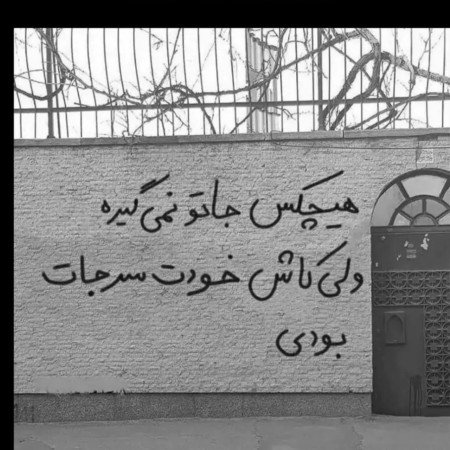 هیچکس جاتو نمی گیره
ولی کاش خودت سر جات
بودی